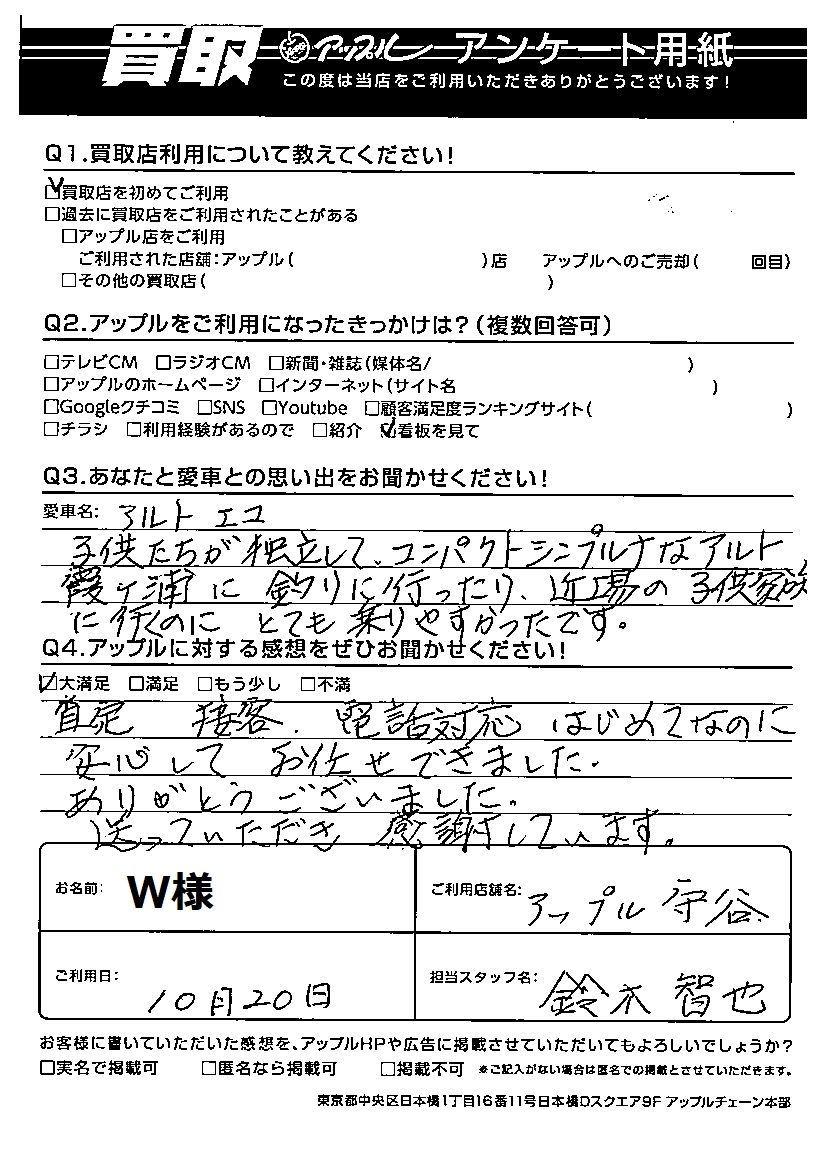 買取 アップル アンケート用紙
この度は当店をご利用いただきありがとうございます!
Q1.買取店利用について教えてください!
☑買取店を初めてご利用
□過去に買取店をご利用されたことがある
□アップル店をご利用
ご利用された店舗:アップル( )店 アップルへのご売却( 回目)
□その他の買取店( )
Q2.アップルをご利用になったきっかけは?(複数回答可)
□テレビCM □ラジオCM □新聞・雑誌(媒体名/ )
□アップルのホームページ □インターネット(サイト名 )
□Googleクチコミ □SNS □Youtube □顧客満足度ランキングサイト( )
□チラシ □利用経験があるので □紹介 ☑看板を見て
Q3.あなたと愛車との思い出をお聞かせください!
愛車名: アルト エコ
子供たちが独立して、コンパクトシンプルナなアルト
霞ヶ浦に釣りに行ったり、近場の子供家族
に行くのに とても乗りやすかったです。
Q4.アップルに対する感想をぜひお聞かせください!
☑大満足 □満足 □もう少し □不満
査定 接客、電話対応 はじめてなのに
安心して お任せできました.
ありがとうございました。
送っていただき 感謝しています。
お名前: W様 ご利用店舗名: アップル 守谷
ご利用日: 10月20日 担当スタッフ名: 鈴木 智也
お客様に書いていただいた感想を、アップルHPや広告に掲載させていただいてもよろしいでしょうか?
□実名で掲載可 □匿名なら掲載可 □掲載不可 ※ご記入がない場合は匿名での掲載とさせていただきます。
東京都中央区日本橋1丁目16番11号日本橋Dスクエア9F アップルチェーン本部